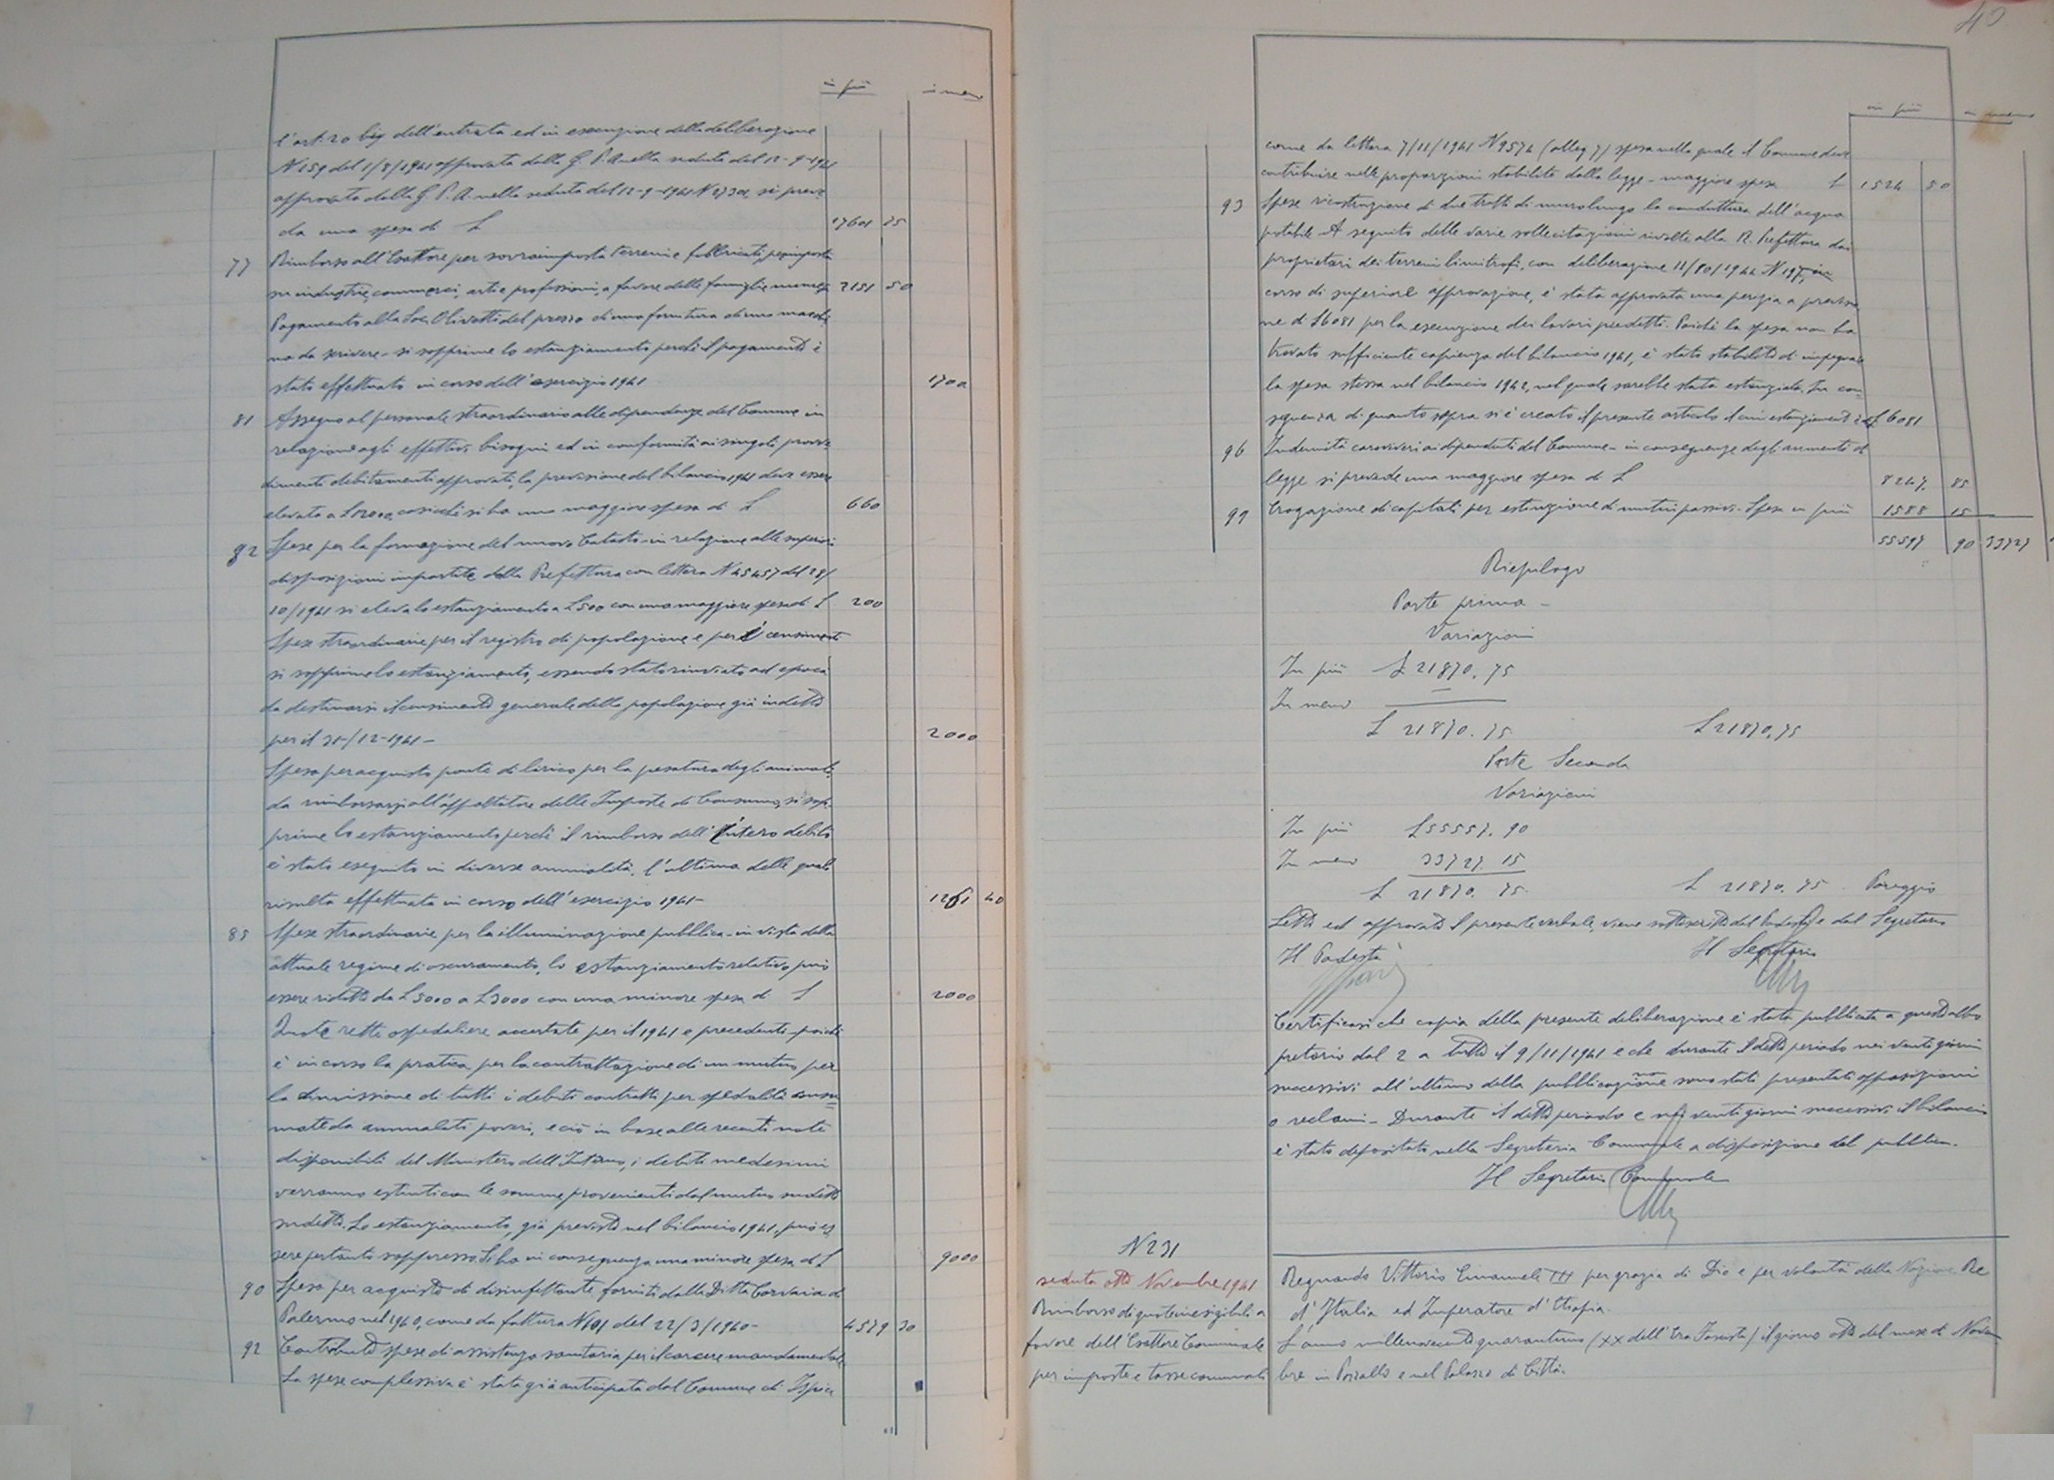 in più in meno
l'art. 20 bis dell'entrata ed in esecuzione della deliberazione
N 159 del 1/8/1941 approvata dalla G. P. A nella seduta del 12-9-1941
approvata dalla G. P. A. nella seduta del 12-9-1941 N 2730, si preve
da una spesa di £ 17601 25
77 Rimborso all'Esattore per sovraimposta terreni e fabbricati, per imposta
su industrie, commerci, arti e professioni, a favore delle famiglie numer. 2151 50
Pagamento alla Soc. Olivetti del prezzo di una fornitura di una macchi
na da scrivere - si sopprime lo estanziamento perchè il pagamento è
stato effettuato in corso dell'esercizio 1941 1700
81 Assegno al personale straordinario alle dipendenze del Comune in
relazione agli effettivi bisogni ed in conformità ai singoli provve
dimenti debitamenti approvati, la previsione del bilancio 1941 deve essere
elevata a cosicchè si ha una maggiore spesa di £ 660
82 Spese per la formazione del nuovo Catasto - in relazione alle superiori
disposizioni impartite dalla Prefettura con lettera N 45457 del 28/
10/1941 si eleva lo estanziamento a £ 500 con una maggiore spesa di £ 200
Spese straordinarie per il registro di popolazione e per il censimento
si sopprime lo estanziamento, essendo stato rinviato ad epoca
da destinarsi il censimento generale della popolazione già indetto
per il 31/12-1941- 2000
Spesa per acquisto ponte di bilico per la pesatura degli animali
da rimborsarsi all'appaltatore delle Imposte di Consumo, si sop
prime lo estanziamento perchè il rimborso dell'intero debito
è stato eseguito in diverse annualità, l'ultima delle quali
risulta effettuata in corso dell'esercizio 1941- 1261 40
85 Spese straordinarie per la illuminazione pubblica - in vista della
attuale regime di oscuramento, lo estanziamento relativo può
essere ridotto da £ 5000 a £ 3000 con una minore spesa di £ 2000
Quote rette ospedaliere accertate per il 1941 e precedenti - poichè
è in corso la pratica per la contrattazione di un mutuo per
la dimissione di tutti i debiti contratti per spedalità consu
mate da ammalati poveri, e ciò in base alle recenti note
disponibili del Ministero dell'Interno, i debiti medesimi
verranno estinti con le somme provenienti dal mutuo sudetto
sudetto. Lo estanziamento, già previsto nel bilancio 1941, può es
sere pertanto soppresso. Si ha in conseguenza una minore spesa di £ 9000
90 Spesa per acquisto di disinfettante forniti dalla Ditta Corvaia di
Palermo nel 1940, come da fattura N 101 del 22/3/1940- 4579 30
92 Contributo spese di assistenza sanitaria per il carcere mandamentale
La spesa complessiva è stata già anticipata dal Comune di Ispica
40
in più in meno
come da lettera 7/11/1941 N 9574 (alleg 7) spesa nella quale il Comune deve
contribuire nelle proporzioni stabilite dalla legge - maggiore spesa £ 1524 50
93 Spese ricostruzione di due tratti di muro lungo la conduttura dell'acqua
potabile - A seguito delle varie sollecitazioni rivolte alla R. Prefettura dai
proprietari dei terreni limitrofi, con deliberazione N 197, in
corso di superiore approvazione, è stata approvata una perizia a previsio
ne di £ 6081 per la esecuzione dei lavori predetti. Poichè la spesa non ha
trovato sufficiente capienza del bilancio 1941, è stato stabilito di impegnare
la spesa stessa nel bilancio 1942, nel quale sarebbe stata estanziata. In con
seguenza di quanto sopra si è creato il presente articolo il cui estanziamento è di £ 6081
96 Indennità caroviveri ai dipendenti del Comune - in conseguenza degli aumenti di
legge si prevede una maggiore spesa di £ 8247 85
99 Erogazione di capitali per estinzione di mutui passivi. Spesa in più 1588 15
55597 90 33727
Riepilogo
Parte prima -
Variazioni
In più £ 21870.75
In meno —
£ 21870.75 £ 21870,75
Parte Seconda
Variazioni
In più £ 55597.90
In meno 33727.15
£ 21870.75 £ 21870.75 Pareggio
Letto ed approvato il presente verbale, viene sottoscritto dal Podestà e dal Segretario
Il Podestà Il Segretario
Certificasi che copia della presente deliberazione è stata pubblicata a questo albo
pretorio dal 2 a tutto il 9/11/1941 e che durante il detto periodo nei venti giorni
successivi all'ultimo della pubblicazione non sono stati presentati opposizioni
o reclami - Durante il detto periodo e nei venti giorni successivi il bilancio
è stato depositato nella Segreteria Comunale a disposizione del pubblico.
Il Segretario Comunale
N 231
seduta otto Novembre 1941
Rimborso di quote inesigibili a
favore dell'Esattore Comunale
per imposte e tasse comunali
Regnando Vittorio Emanuele III per grazia di Dio e per volontà della Nazione Re
d'Italia ed Imperatore d'Etiopia.
L'anno millenovecentoquarantuno (XX dell'Era Fascista) il giorno otto del mese di Novem
bre in Pozzallo e nel Palazzo di Città.